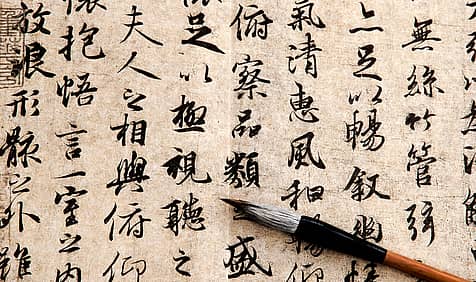 無絲竹管弦
亦足以暢敘幽情
氣清惠風和暢仰
俯察品類之盛
懷足以極視聽之
夫人之相與俯仰
懷抱悟言一室之內
放浪形骸之外雖